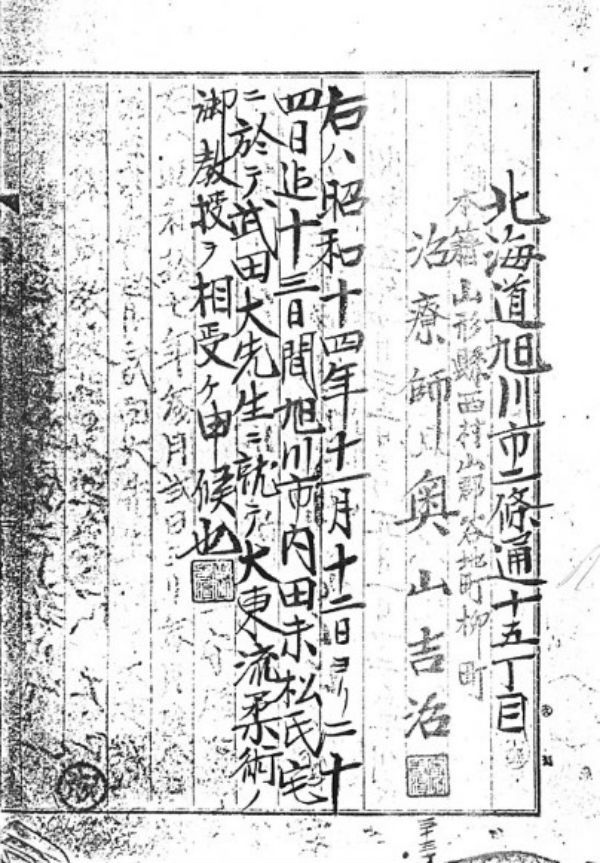 北海道旭川市二條通十五丁目
本籍山形縣西村山郡谷地町柳町
治療師 奥山吉治
右ハ昭和十四年十一月十二日ヨリ二十
四日迠十三日間旭川市内田末松氏宅
ニ於テ武田大先生ニ就テ大東流柔術ノ
御教授ヲ相受ケ申候也